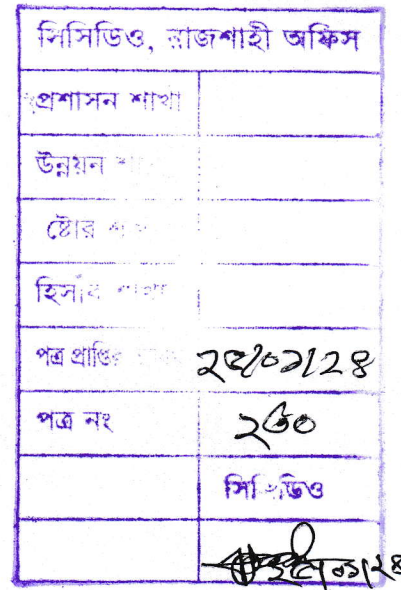 সিসিডিও, রাজশাহী অফিস
প্রশাসন শাখা
উন্নয়ন
ষ্টোর
হিসাব শাখা
পত্র প্রাপ্তির ২৫/০১/২৪
পত্র নং ২৬০
সিসিডিও
২৫/০১/২৪